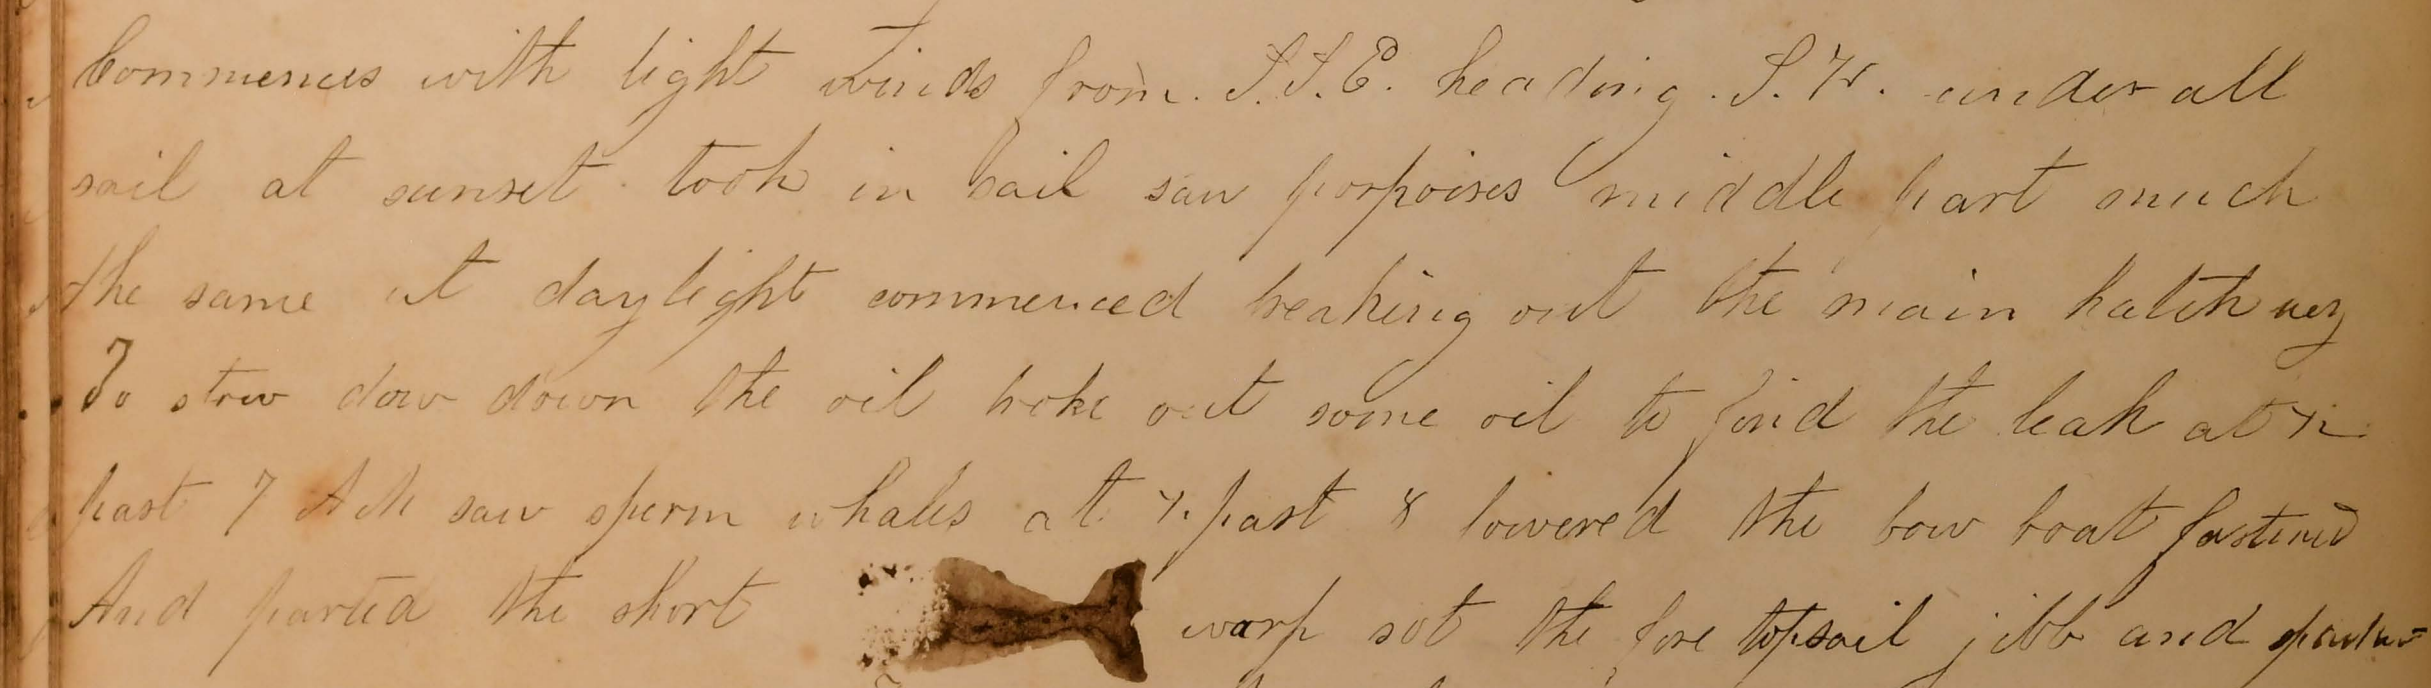 Commences with light winds from. S.S.E. heading. S.W. under all
sail at sunset took in sail saw porpoises middle part much
the same at daylight commenced breaking out the main hatch way
To stow dow down the oil broke out some oil to find the leak at ½
past 7 AM saw sperm whales at ½ past 8 lowered the bow boat fastened
And parted the short warp sot the fore topsail jibb and